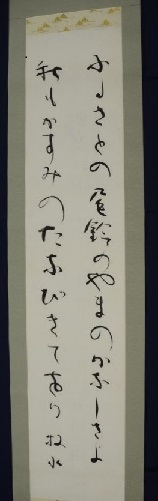 ふるさとの尾鈴のやまのかなしさよ
秋もかすみのたなびきて居り 牧水